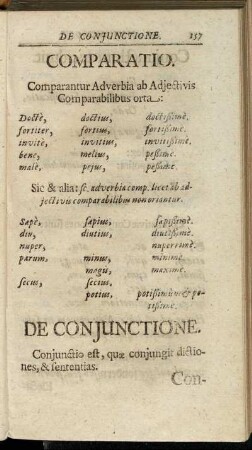 DE CONJUNCTIONE. 157
COMPARATIO.
Comparantur Adverbia ab Adjectivis
Comparabilibus orta:
Doctè, doctius, doctissimè.
fortiter, fortius, fortissimè.
invitè, invitius, invitissimè.
benè, melius, pessimè.
malè, pejus, pessimè.
Sic & alia: sc. adverbia comp. licet ab ad-
jectivis comparabilibus non oriantur.
Sæpè, sæpius, sæpissimè.
diu, diutius, diutissimè.
nuper, nuperrimè.
parum, minus, minimè.
magis, maximè.
secus, secius.
potius, potissimùm & po-
tissimè.
DE CONJUNCTIONE.
Conjunctio est, quæ conjungit dictio-
nes, & sententias.
Con-